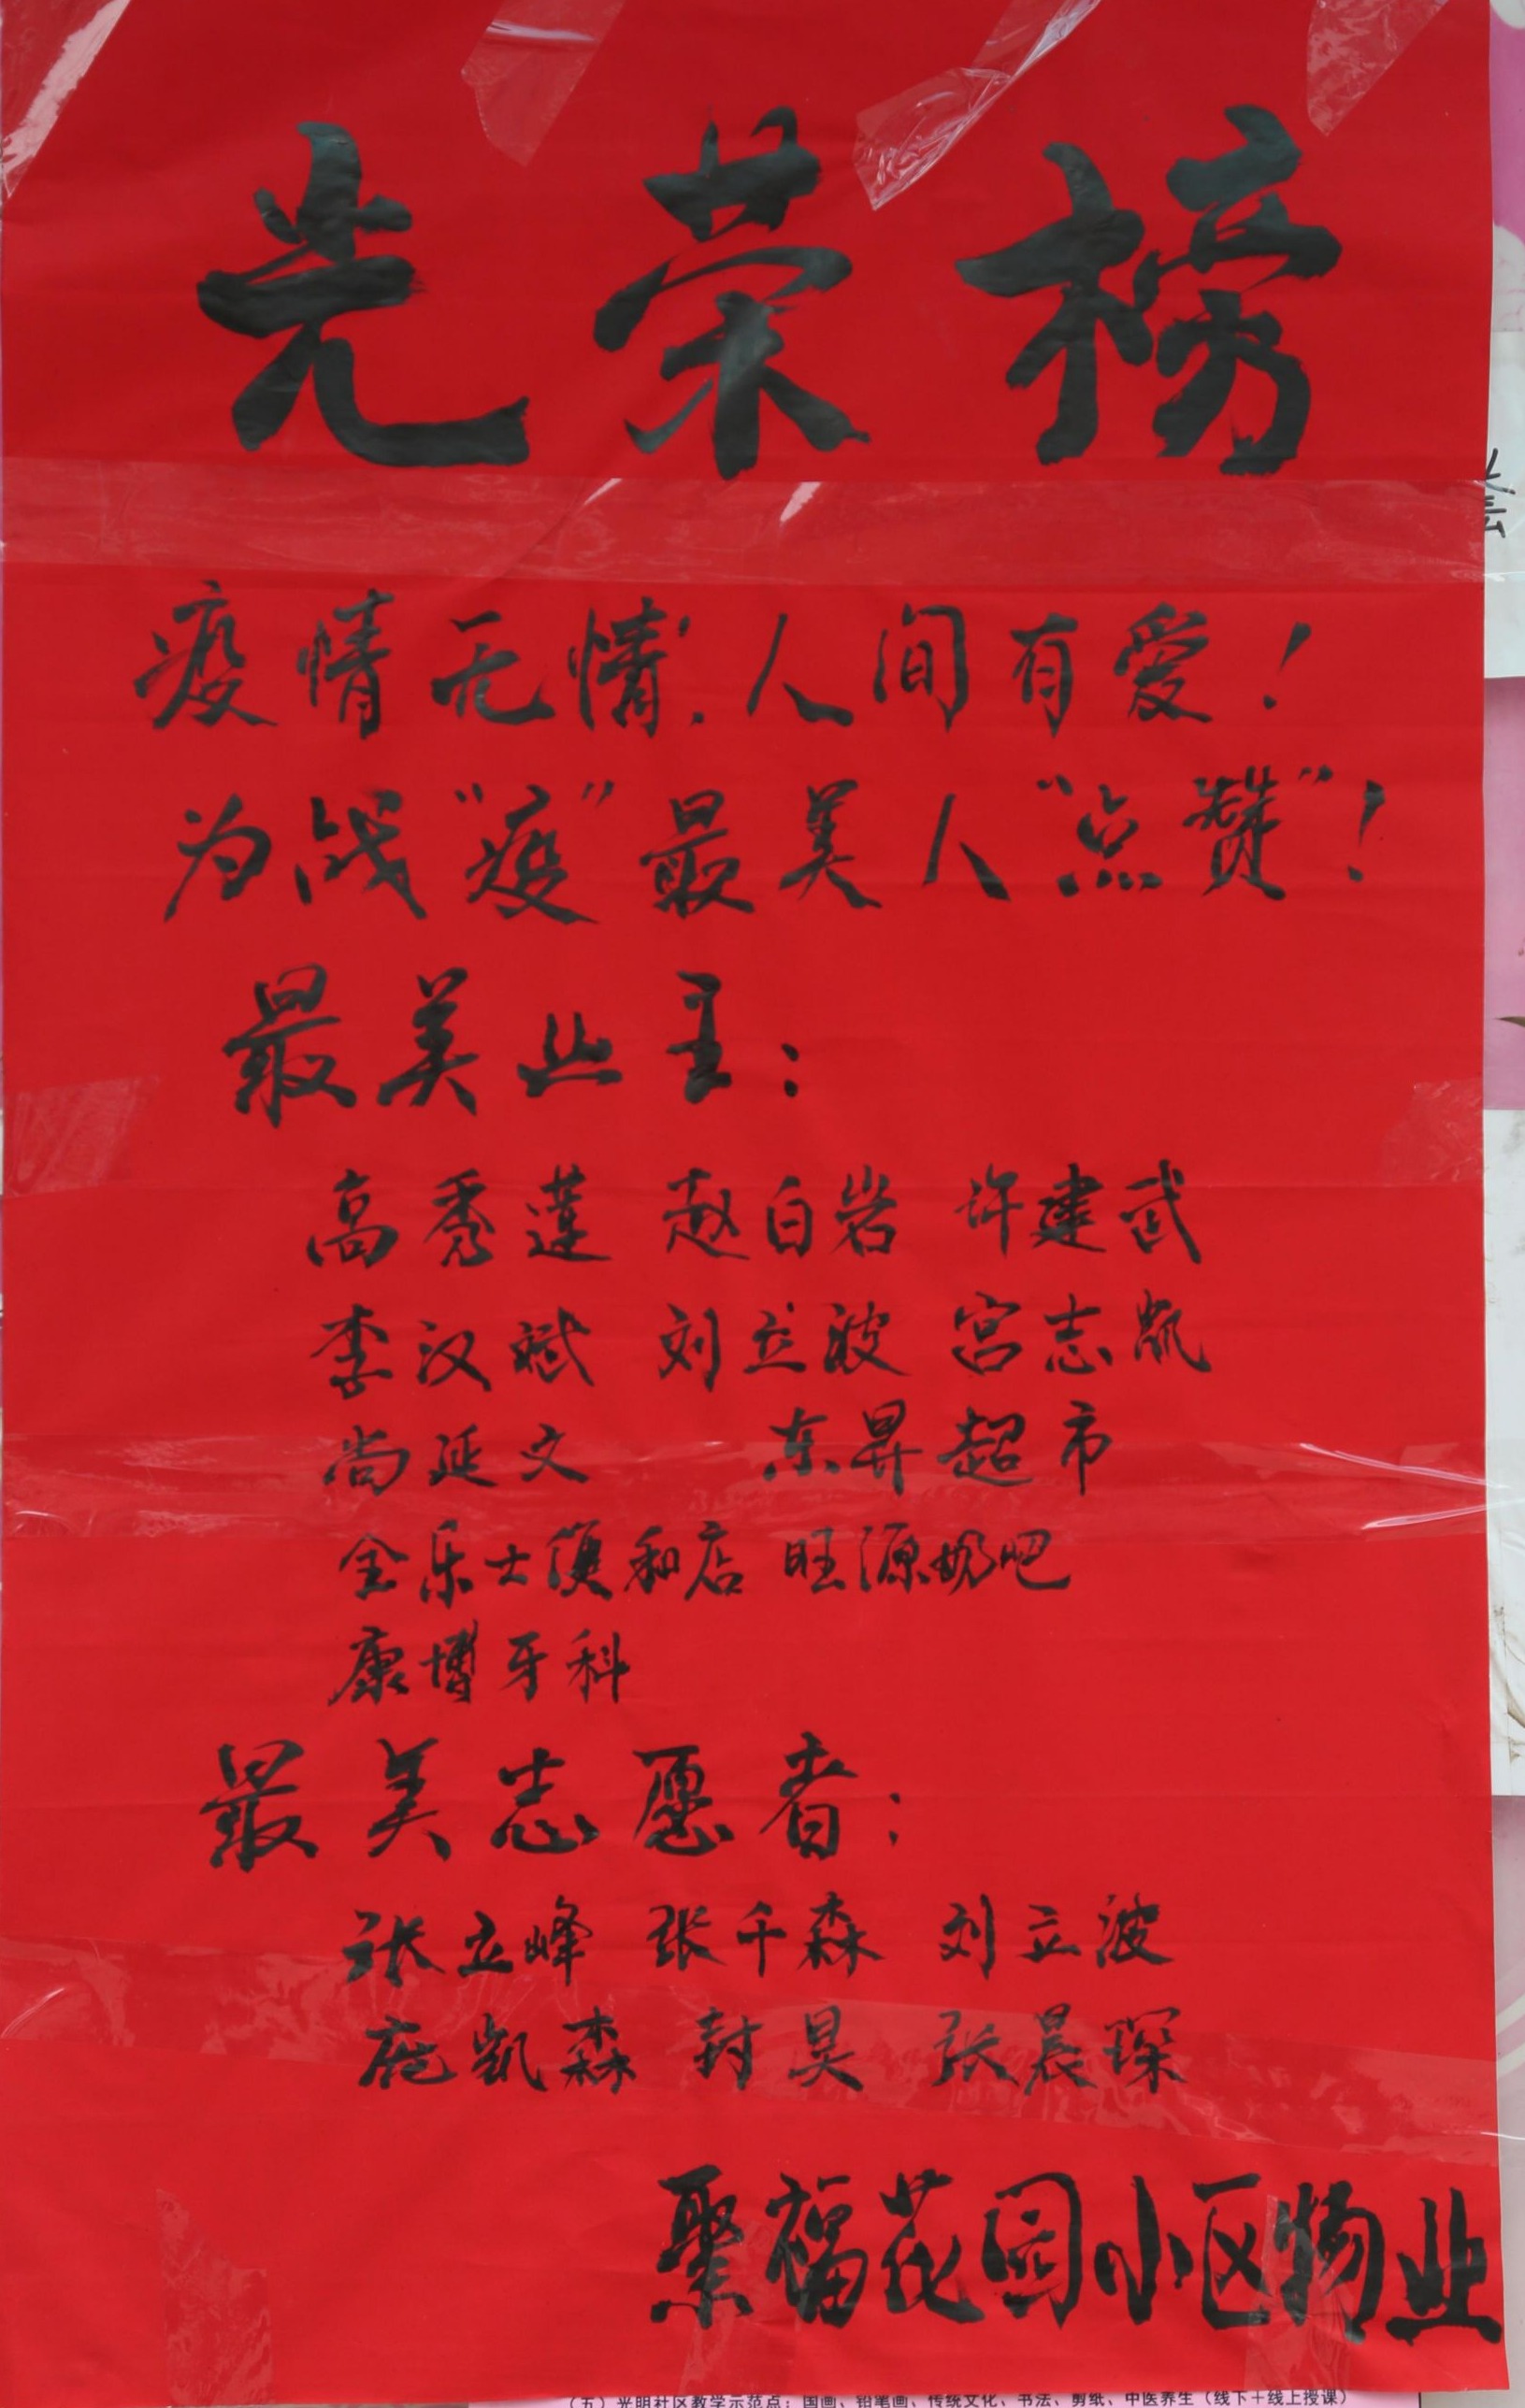 光荣榜
疫情无情，人间有爱！
为战“疫”最美人“点赞”！
最美业主：
高秀莲 赵白岩 许建武
李汉斌 刘立波 宫志凯
尚延文 东昇超市
全乐士便利店 旺源奶吧
康博牙科
最美志愿者：
张立峰 张千森 刘立波
庞凯森 封昊 张晨琛
聚福花园小区物业
（五）光明社区教学示范点：国画、铅笔画、传统文化、书法、剪纸、中医养生（线下＋线上授课）